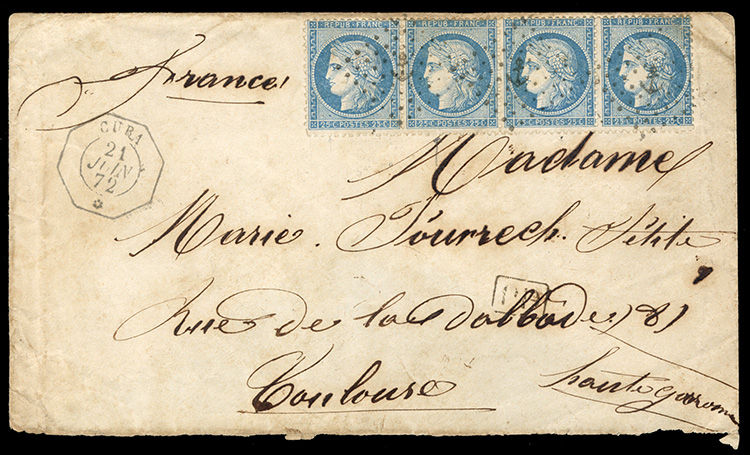 REPUB·FRANC· REPUB·FRANC· REPUB·FRANC· REPUB·FRANC·
25 C·POSTES·25 C· 25 C·POSTES·25 C· 25 C·POSTES·25 C· 25 C·POSTES·25 C·
France
CUBA
21
JUIN
72
Madame
Marie Pourrech. Petite
PD
Rue de la Dalbade, 8,
Toulouse
haute garonne